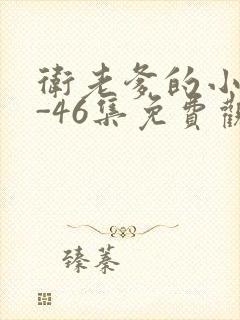 衛老爹的小
-46集免費觀
臻蓁